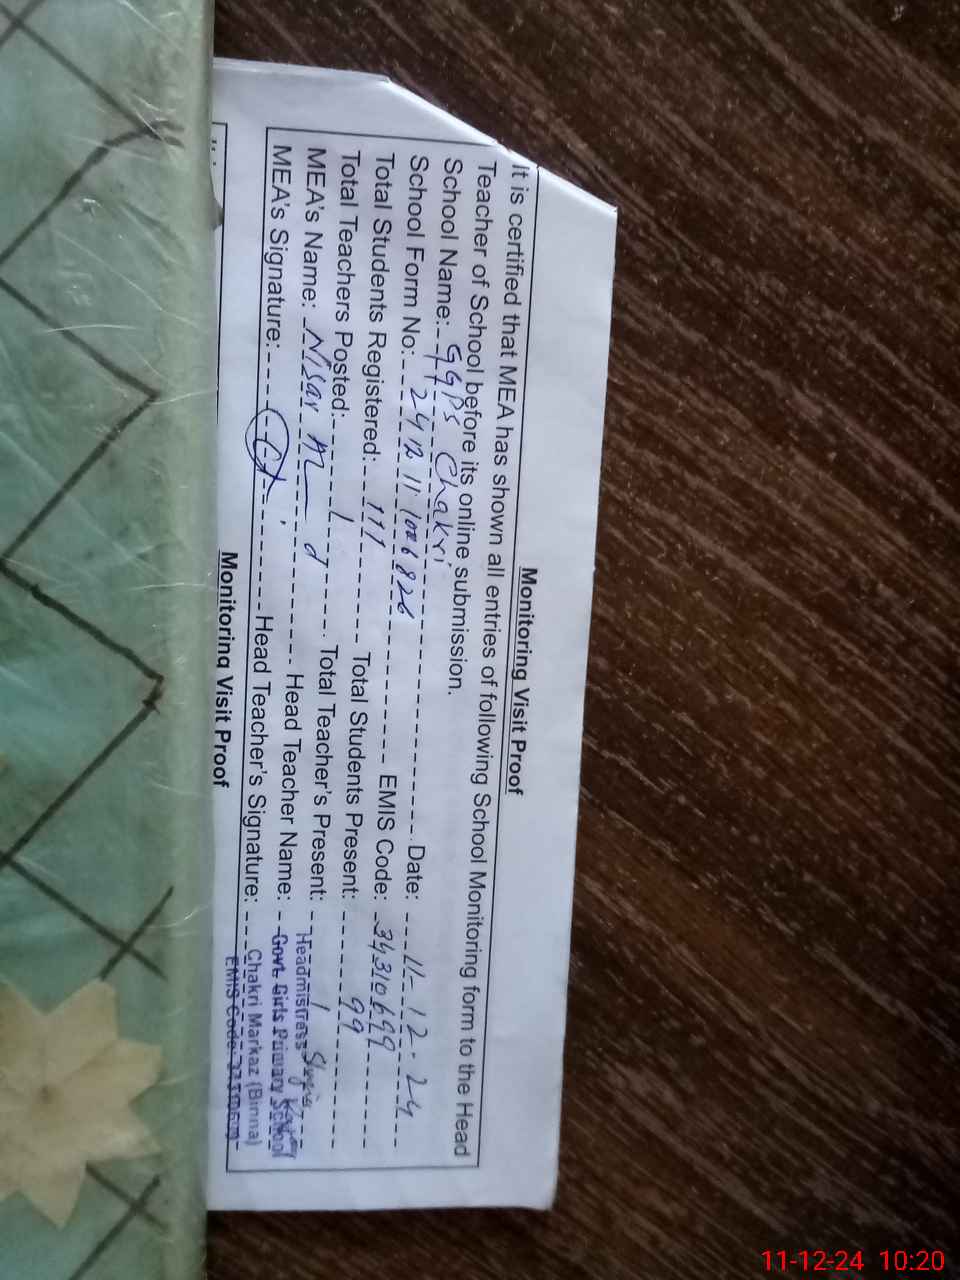 Monitoring Visit Proof
It is certified that MEA has shown all entries of following School Monitoring form to the Head
Teacher of School before its online submission.
School Name: GGPS Chakri Date: 11-12-24
School Form No: 2412111006826 EMIS Code: 34310699
Total Students Registered: 111 Total Students Present: 99
Total Teachers Posted: 1 Total Teacher's Present: 1
MEA's Name: Nisar M d Head Teacher Name:
MEA's Signature: Head Teacher's Signature:
Headmistress
Govt. Girls Primary School
Chakri Markaz (Binna)
EMIS Code:
Monitoring Visit Proof
11-12-24 10:20